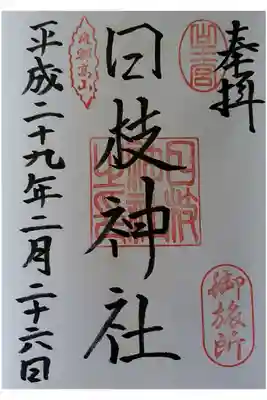 奉拝
日枝神社
御旅所
飛騨高山
平成二十九年二月二十六日